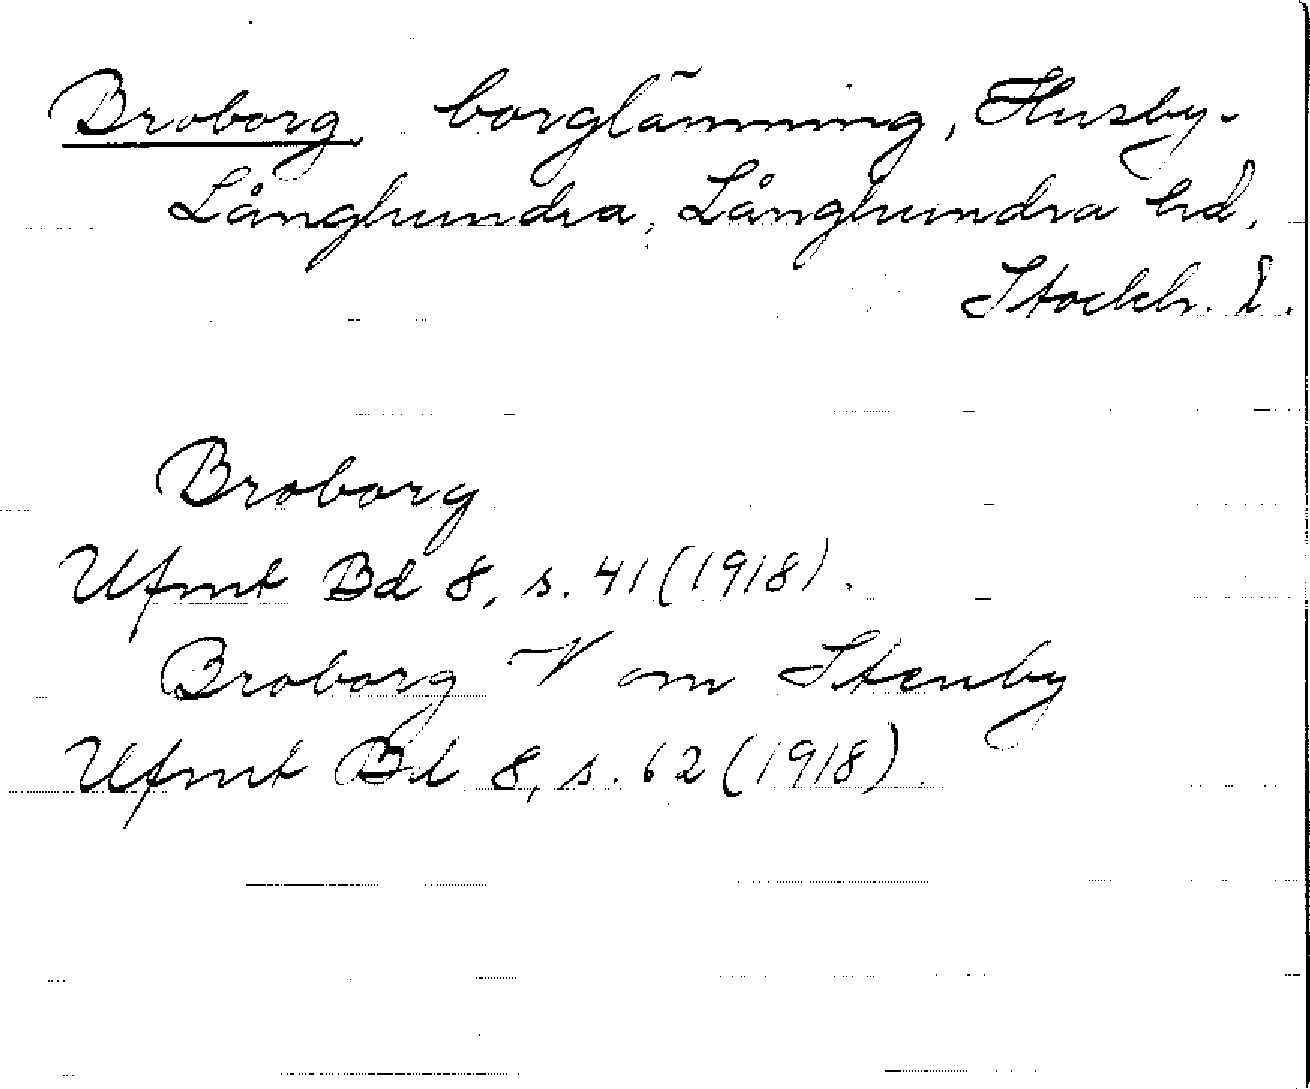 Broborg borglämning, Husby-
Långhundra, Långhundra hd,
Stockh. l.
Broborg
Ufmt Bd 8, s. 41 (1918).
Broborg V om Stenby
Ufmt Bd 8, s. 62 (1918).